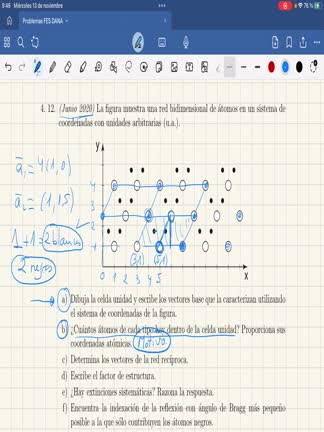 9:46 Miércoles 13 de noviembre
76 %
Problemas FES DANA
4. 12. (Junio 2020) La figura muestra una red bidimensional de átomos en un sistema de
coordenadas con unidades arbitrarias (u.a.).
y
a₁ = 4(1,0)
a₂ = (1,1.5)
1 + 1 = 2 blancos
2 negros
4
3
2
1
(3,1) (5,1)
0 1 2 3 4 5
x
a) Dibuja la celda unidad y escribe los vectores base que la caracterizan utilizando
el sistema de coordenadas de la figura.
b) ¿Cuántos átomos de cada tipo hay dentro de la celda unidad? Proporciona sus
coordenadas atómicas. Motivo
c) Determina los vectores de la red recíproca.
d) Escribe el factor de estructura.
e) ¿Hay extinciones sistemáticas? Razona la respuesta.
f) Encuentra la indexación de la reflexión con ángulo de Bragg más pequeño
posible a la que sólo contribuyen los átomos negros.